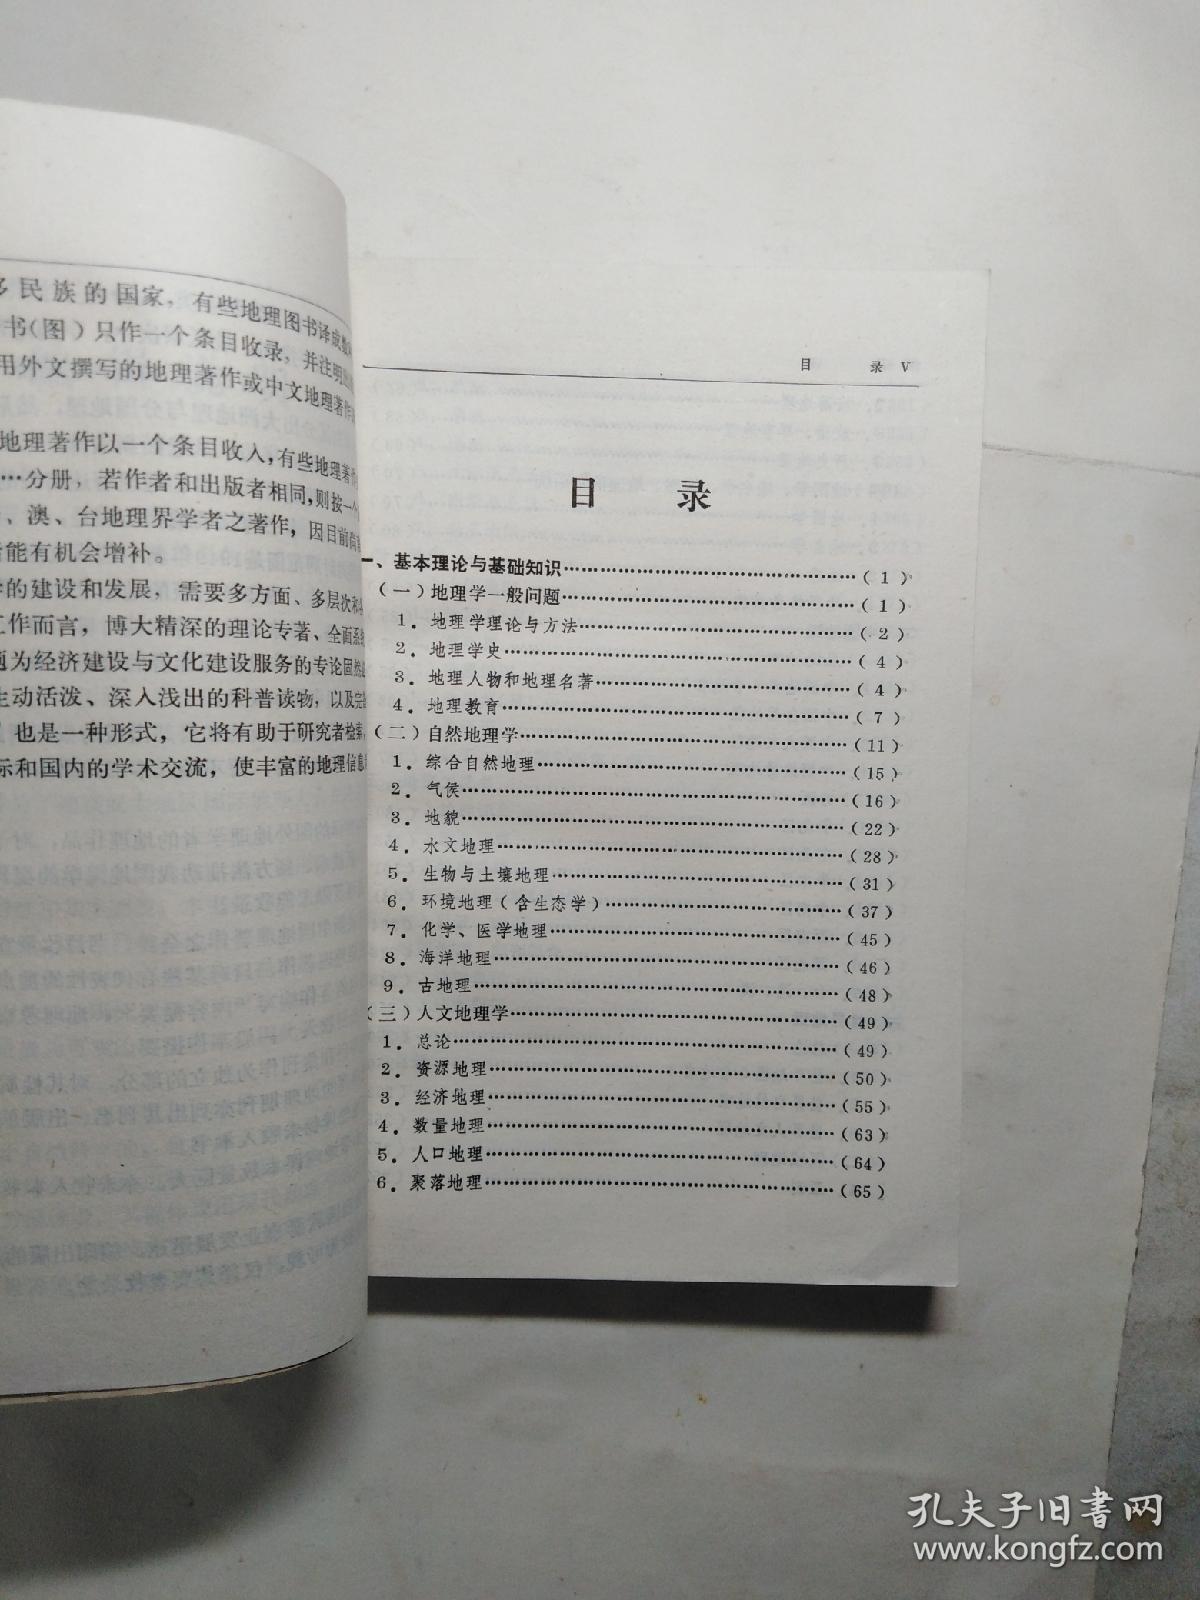 多民族的国家，有些地理图书译成数
书(图)只作一个条目收录，并注明
用外文撰写的地理著作或中文地理著作
地理著作以一个条目收入，有些地理著作
…分册，若作者和出版者相同，则按一个
、澳、台地理界学者之著作，因目前
能有机会增补。
的建设和发展，需要多方面、多层次和
工作而言，博大精深的理论专著、全面系统
为经济建设与文化建设服务的专论固然
生动活泼、深入浅出的科普读物，以及
也是一种形式，它将有助于研究者检索，
际和国内的学术交流，使丰富的地理信息
目 录 V
目 录
一、基本理论与基础知识……………………(1)
(一)地理学一般问题……………………(1)
1．地理学理论与方法……………………(2)
2．地理学史……………………(4)
3．地理人物和地理名著……………………(4)
4．地理教育……………………(7)
(二)自然地理学……………………(11)
1．综合自然地理……………………(15)
2．气侯……………………(16)
3．地貌……………………(22)
4．水文地理……………………(28)
5．生物与土壤地理……………………(31)
6．环境地理(含生态学)……………………(37)
7．化学、医学地理……………………(45)
8．海洋地理……………………(46)
9．古地理……………………(48)
(三)人文地理学……………………(49)
1．总论……………………(49)
2．资源地理……………………(50)
3．经济地理……………………(55)
4．数量地理……………………(63)
5．人口地理……………………(64)
6．聚落地理……………………(65)
孔夫子旧书网
www.kongfz.com